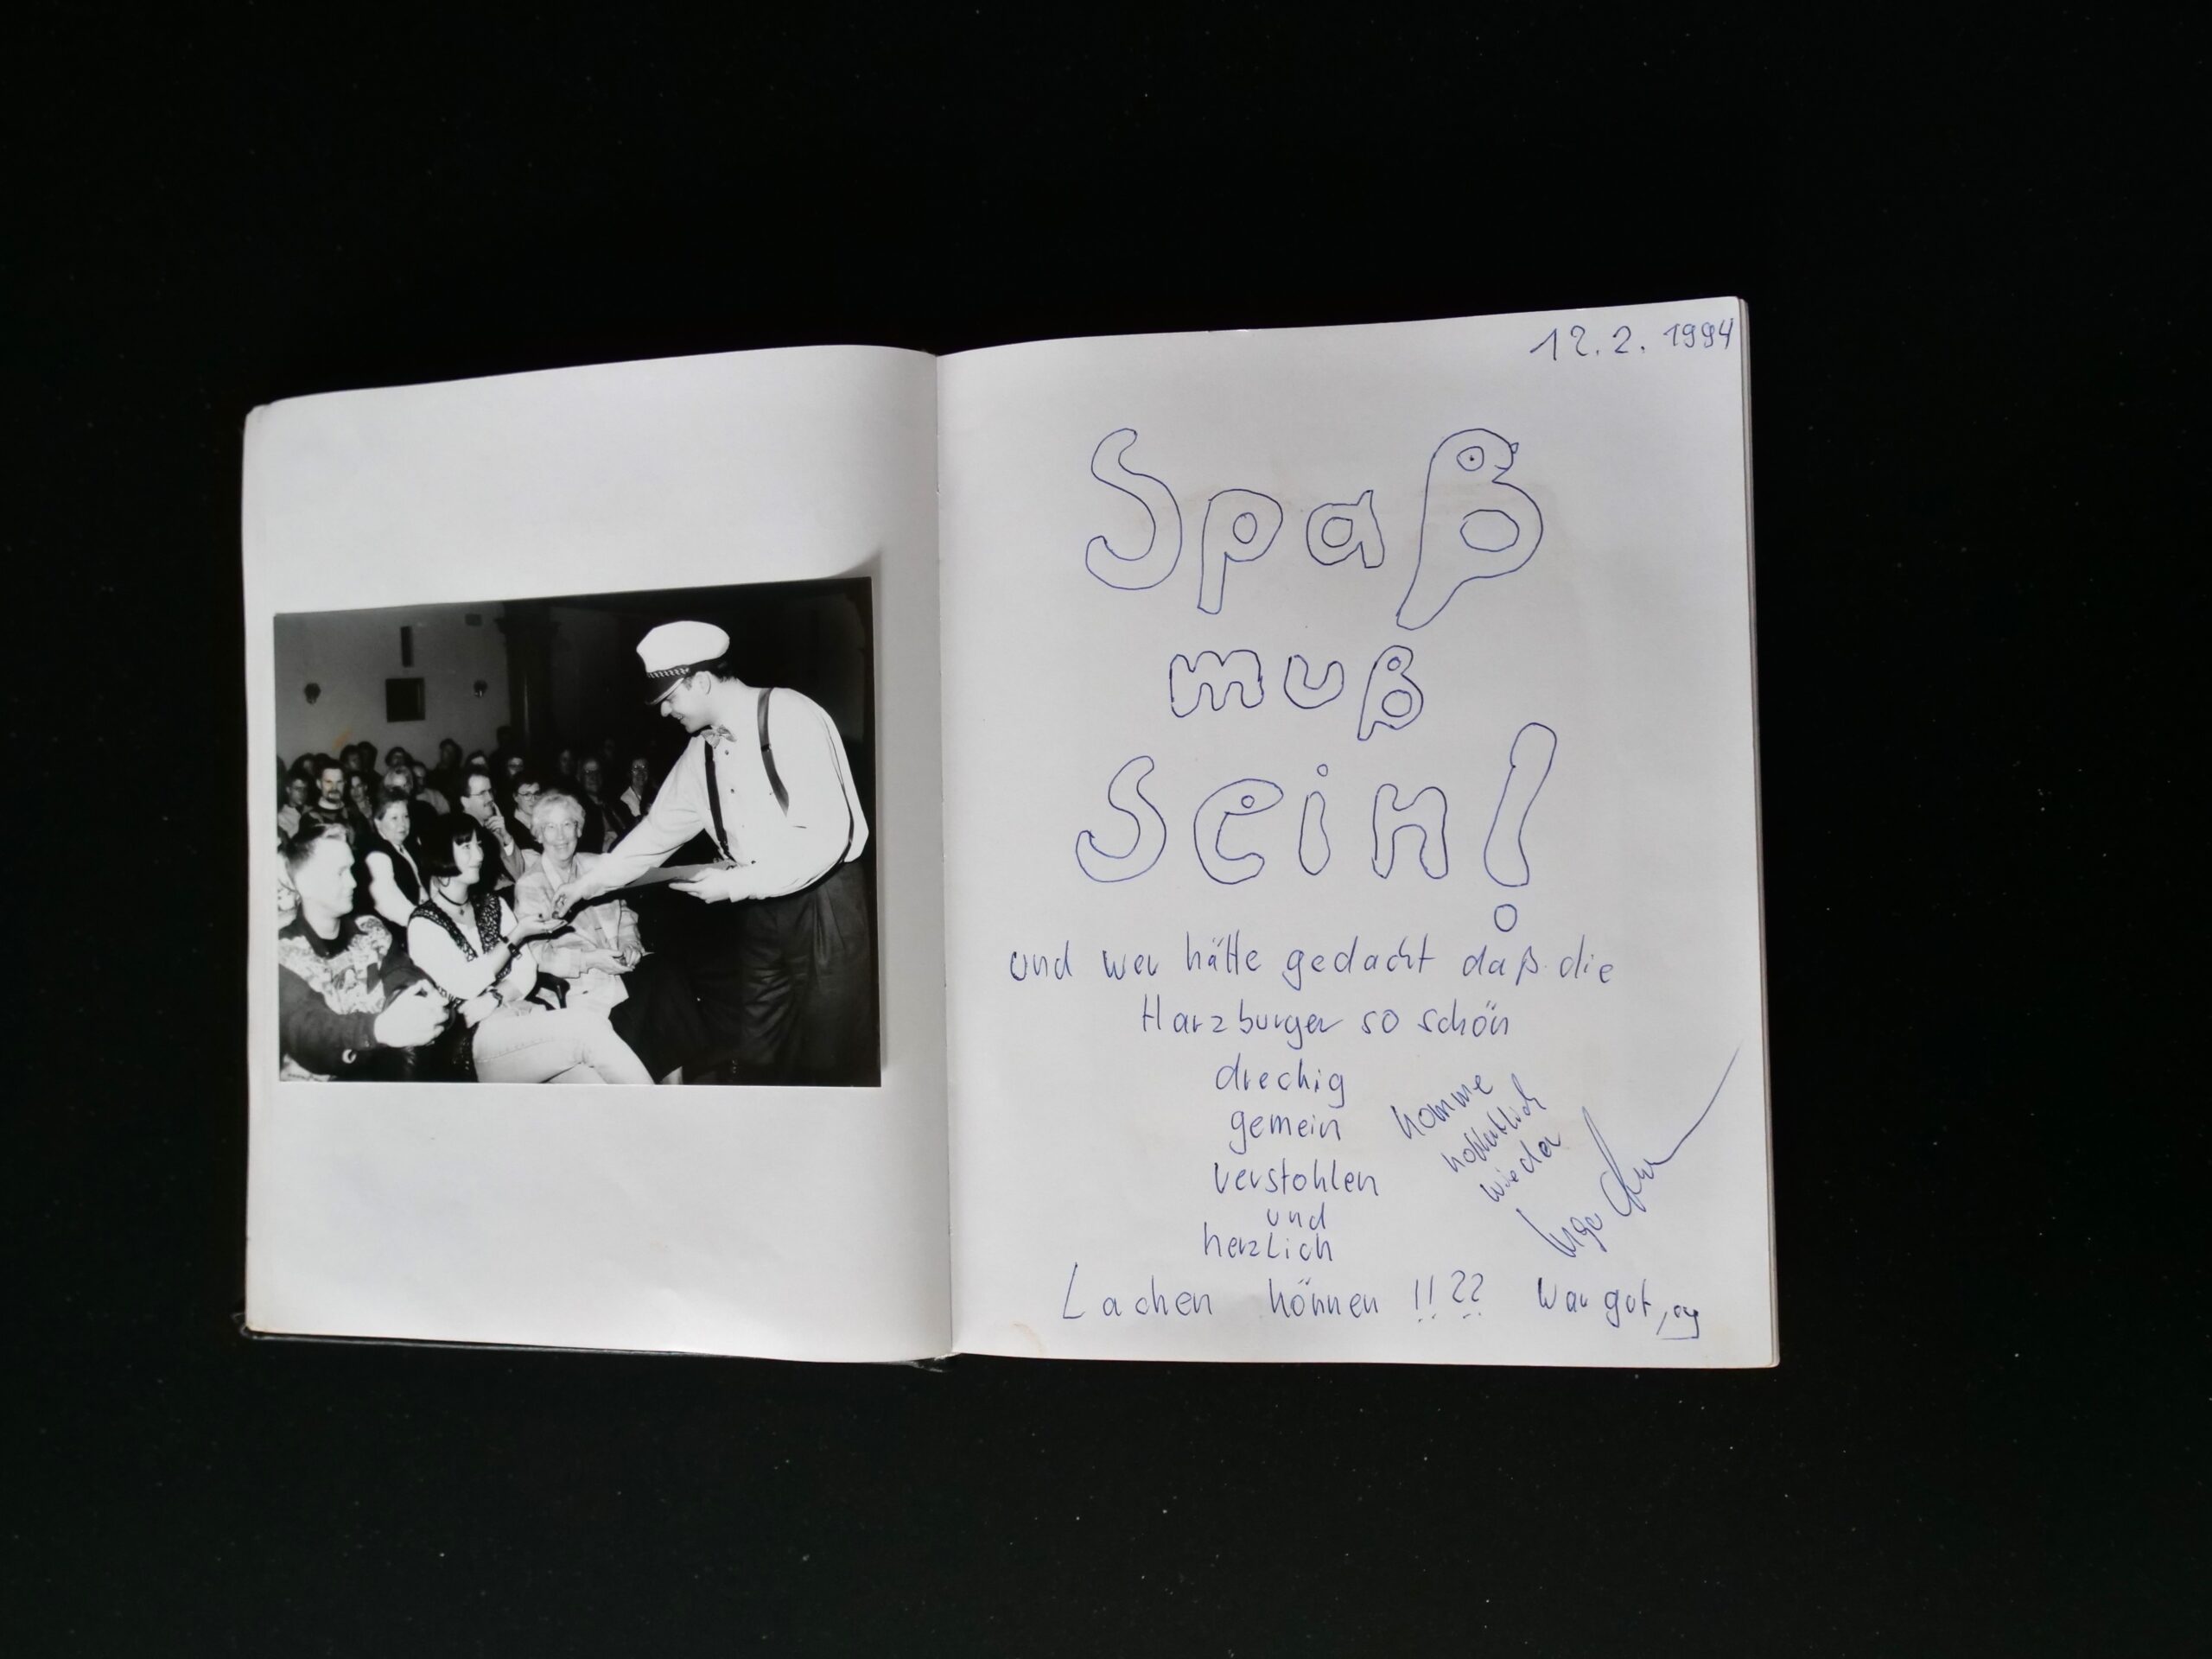 12.2.1994
Spaß
muß
Sein!
und wer hätte gedacht daß die
Harzburger so schön
drechig
gemein
verstohlen
und
herzlich
Lachen können !!??
komme
hoffentlich
wieder
Ingo
War gut,